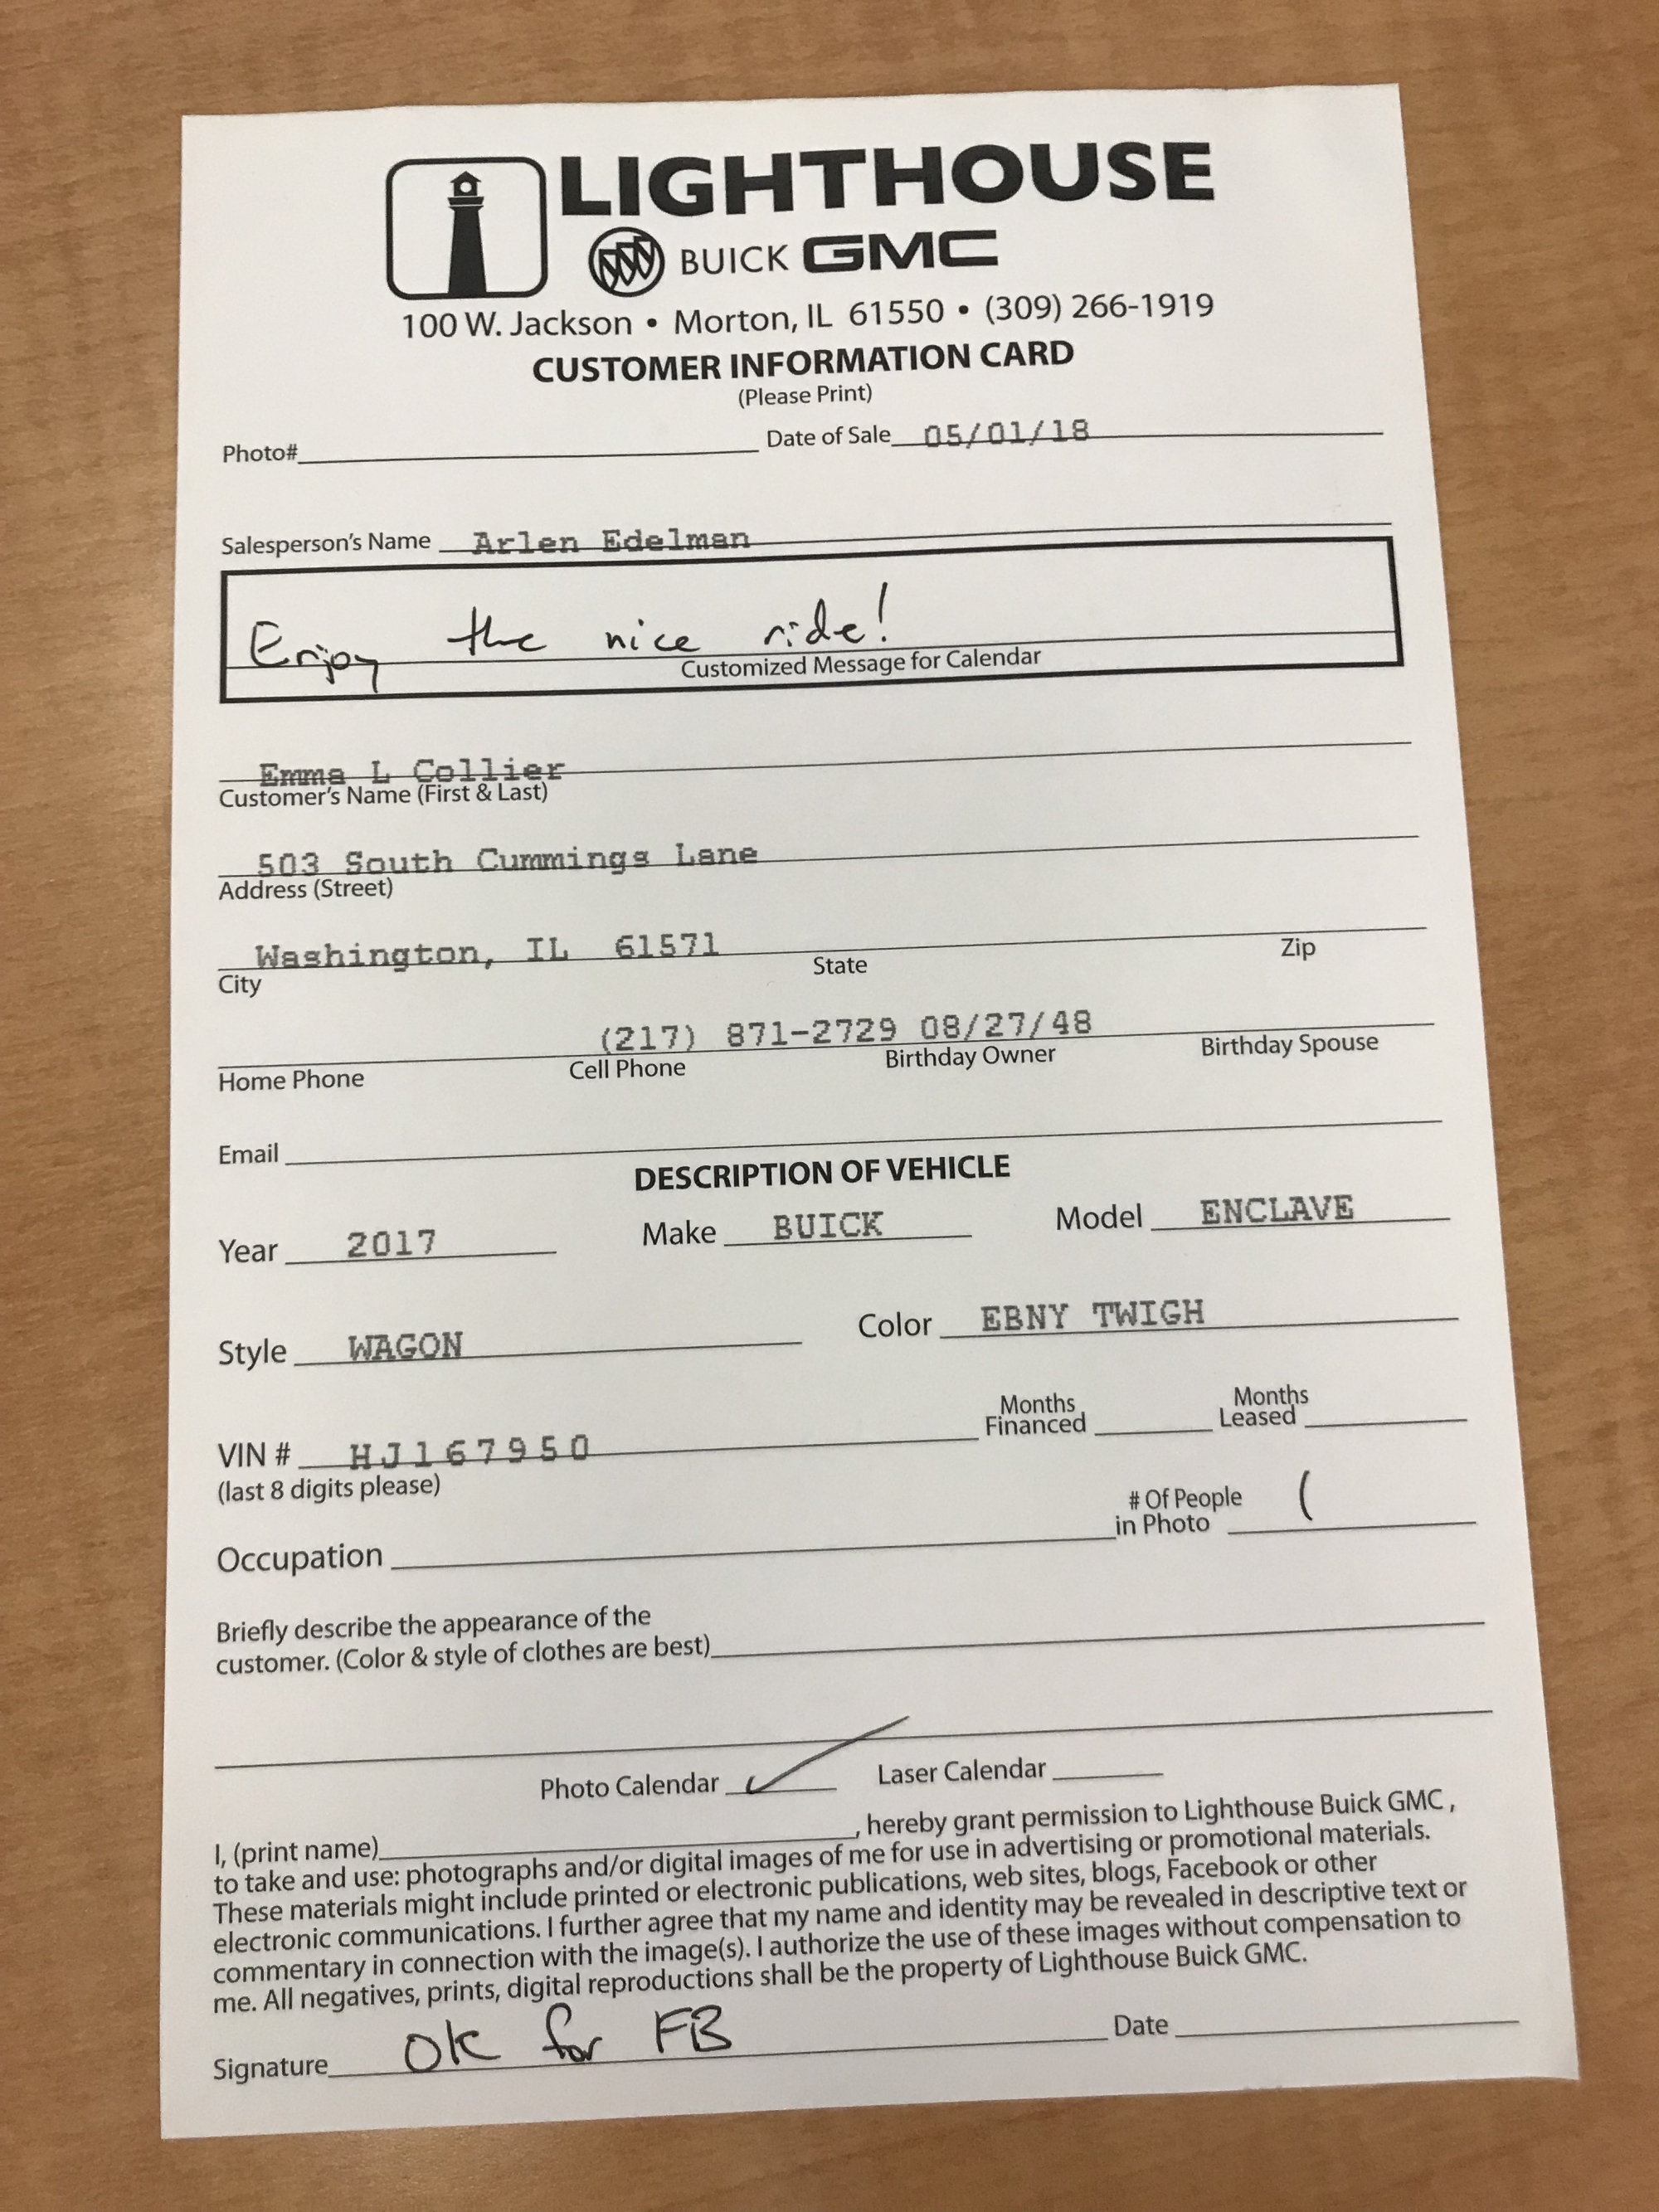 LIGHTHOUSE
BUICK GMC
100 W. Jackson • Morton, IL 61550 • (309) 266-1919
CUSTOMER INFORMATION CARD
(Please Print)
Photo# Date of Sale 05/01/18
Salesperson's Name Arlen Edelman
Enjoy the nice ride!
Customized Message for Calendar
Emma L Collier
Customer's Name (First & Last)
503 South Cummings Lane
Address (Street)
Washington, IL 61571
City State Zip
(217) 871-2729 08/27/48
Home Phone Cell Phone Birthday Owner Birthday Spouse
Email
DESCRIPTION OF VEHICLE
Year 2017 Make BUICK Model ENCLAVE
Style WAGON Color EBNY TWIGH
VIN # HJ167950 Months Financed Months Leased
(last 8 digits please)
Occupation # Of People in Photo (
Briefly describe the appearance of the
customer. (Color & style of clothes are best)
Photo Calendar ✓ Laser Calendar
I, (print name) , hereby grant permission to Lighthouse Buick GMC ,
to take and use: photographs and/or digital images of me for use in advertising or promotional materials.
These materials might include printed or electronic publications, web sites, blogs, Facebook or other
electronic communications. I further agree that my name and identity may be revealed in descriptive text or
commentary in connection with the image(s). I authorize the use of these images without compensation to
me. All negatives, prints, digital reproductions shall be the property of Lighthouse Buick GMC.
Signature OK for FB Date